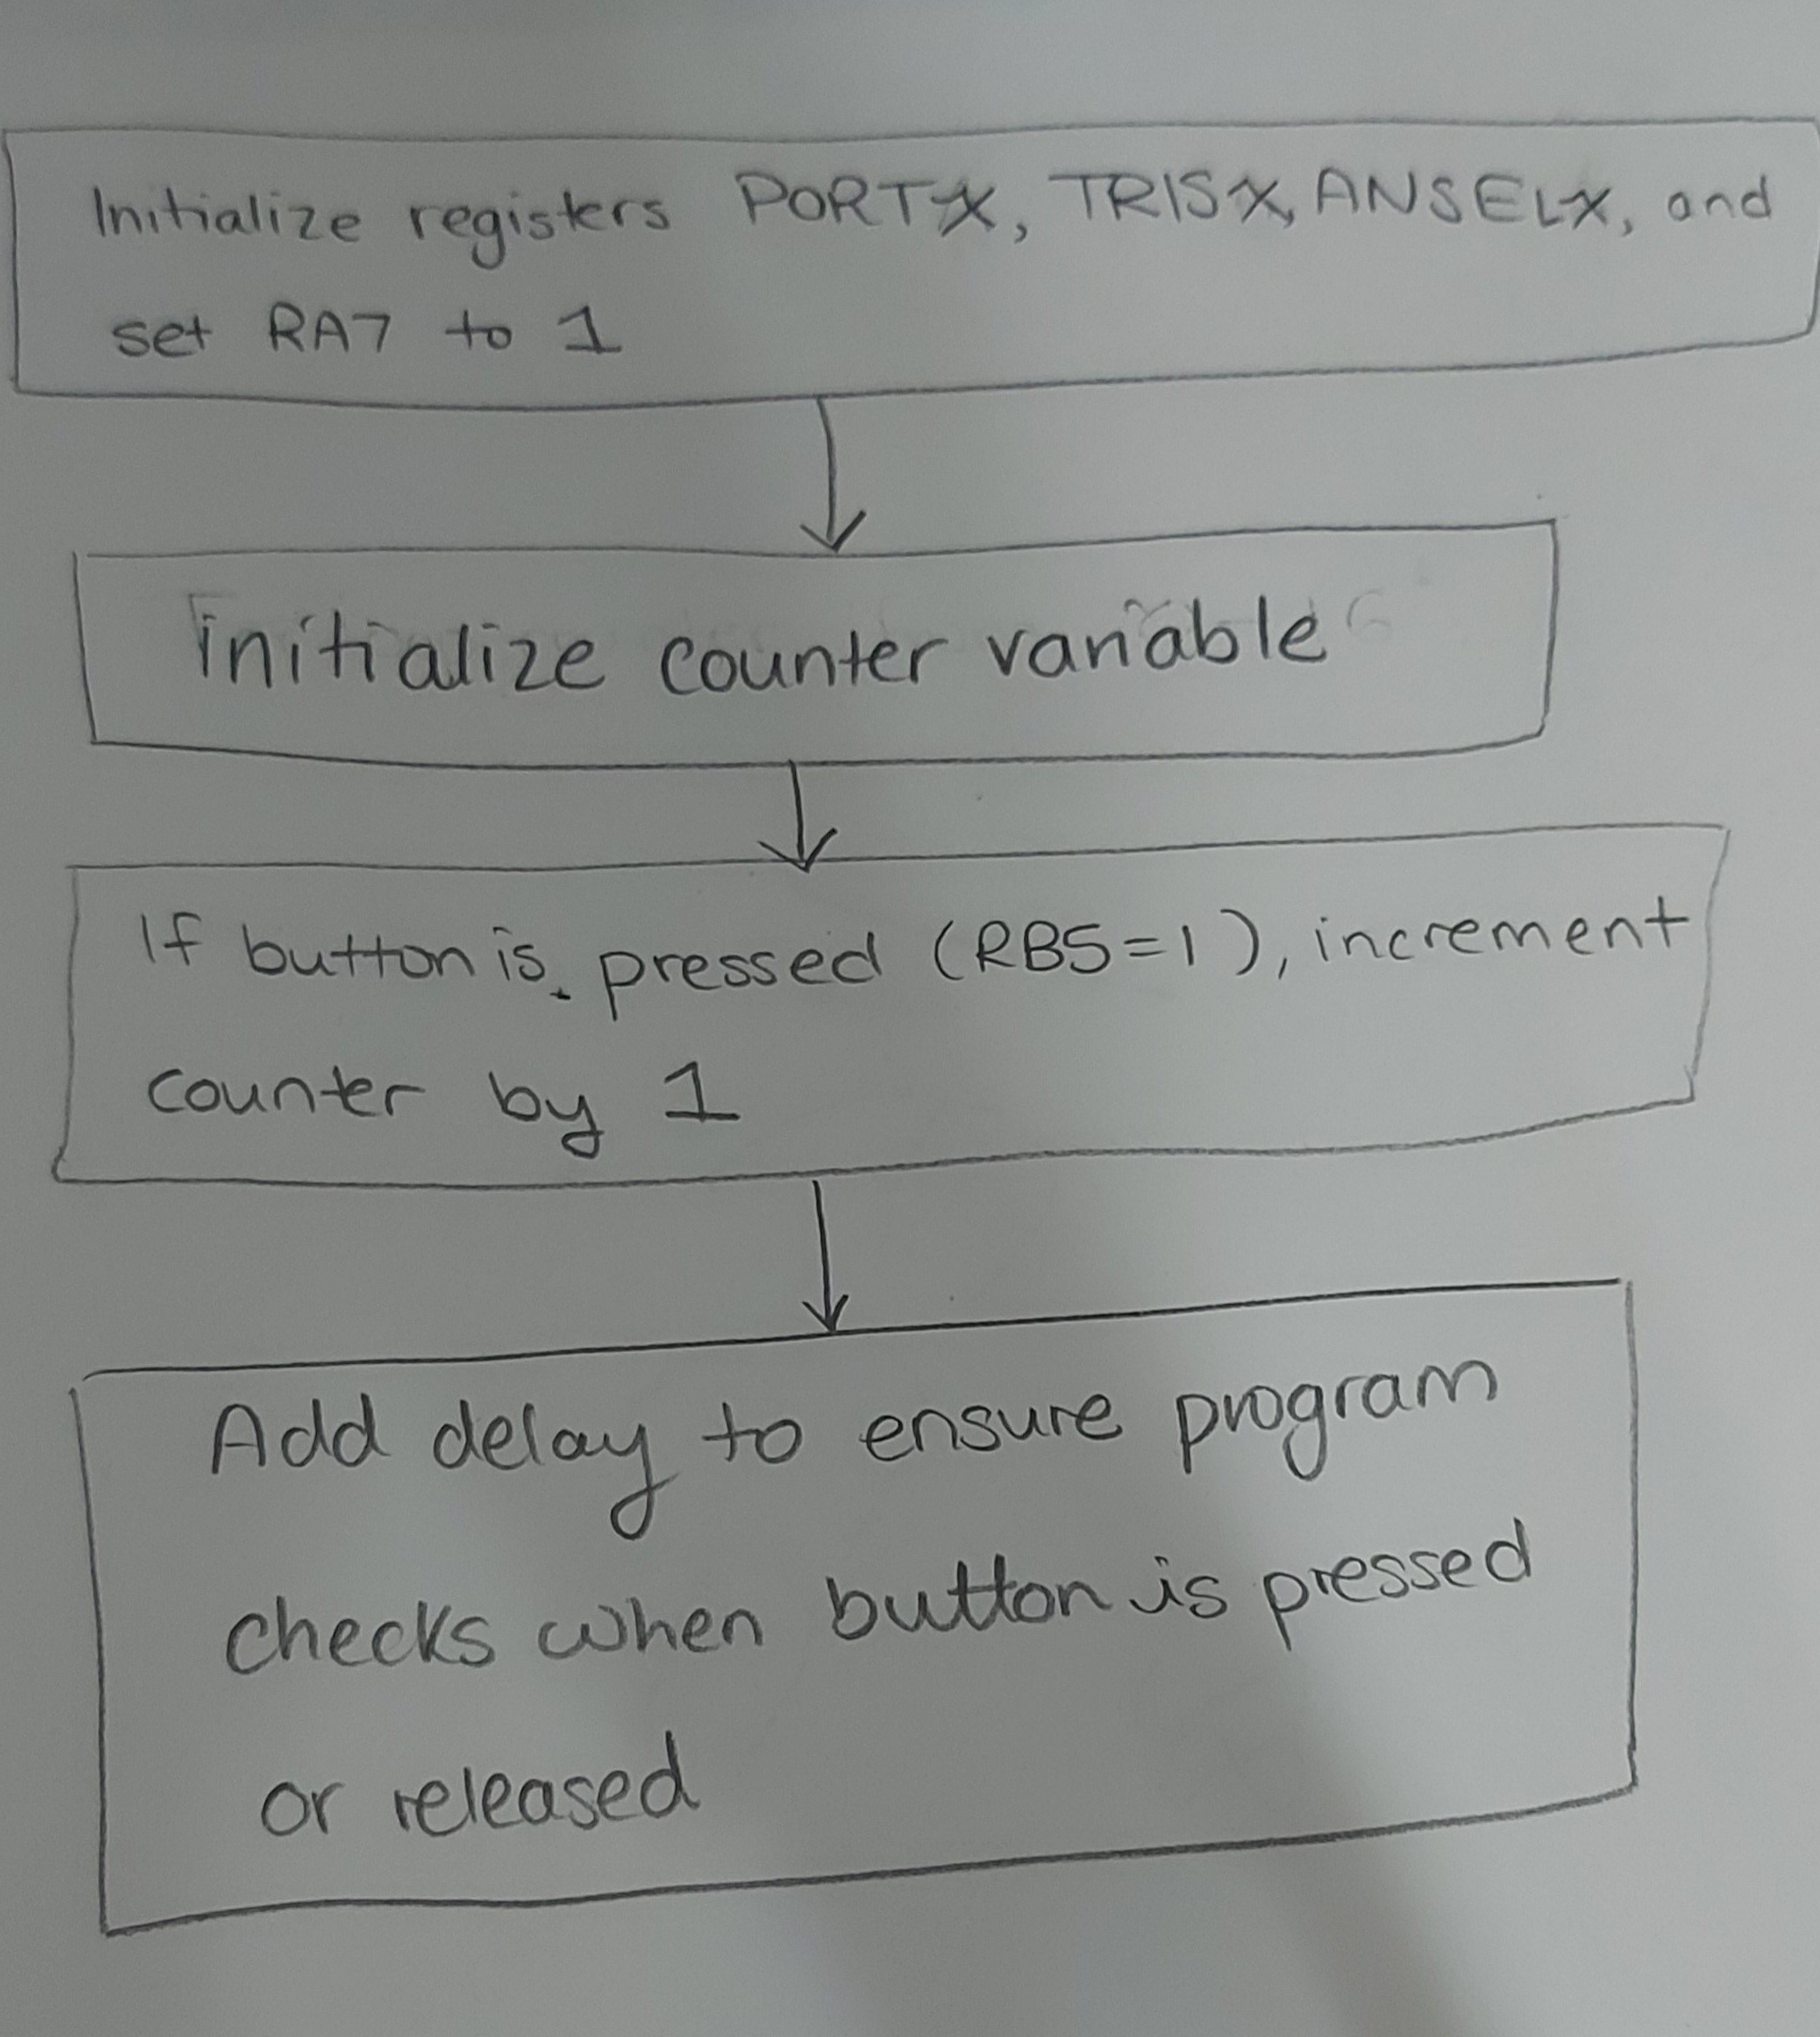 Initialize registers PORTX, TRISX, ANSELX, and
set RA7 to 1
initialize counter variable
If button is pressed (RB5=1), increment
counter by 1
Add delay to ensure program
checks when button is pressed
or released